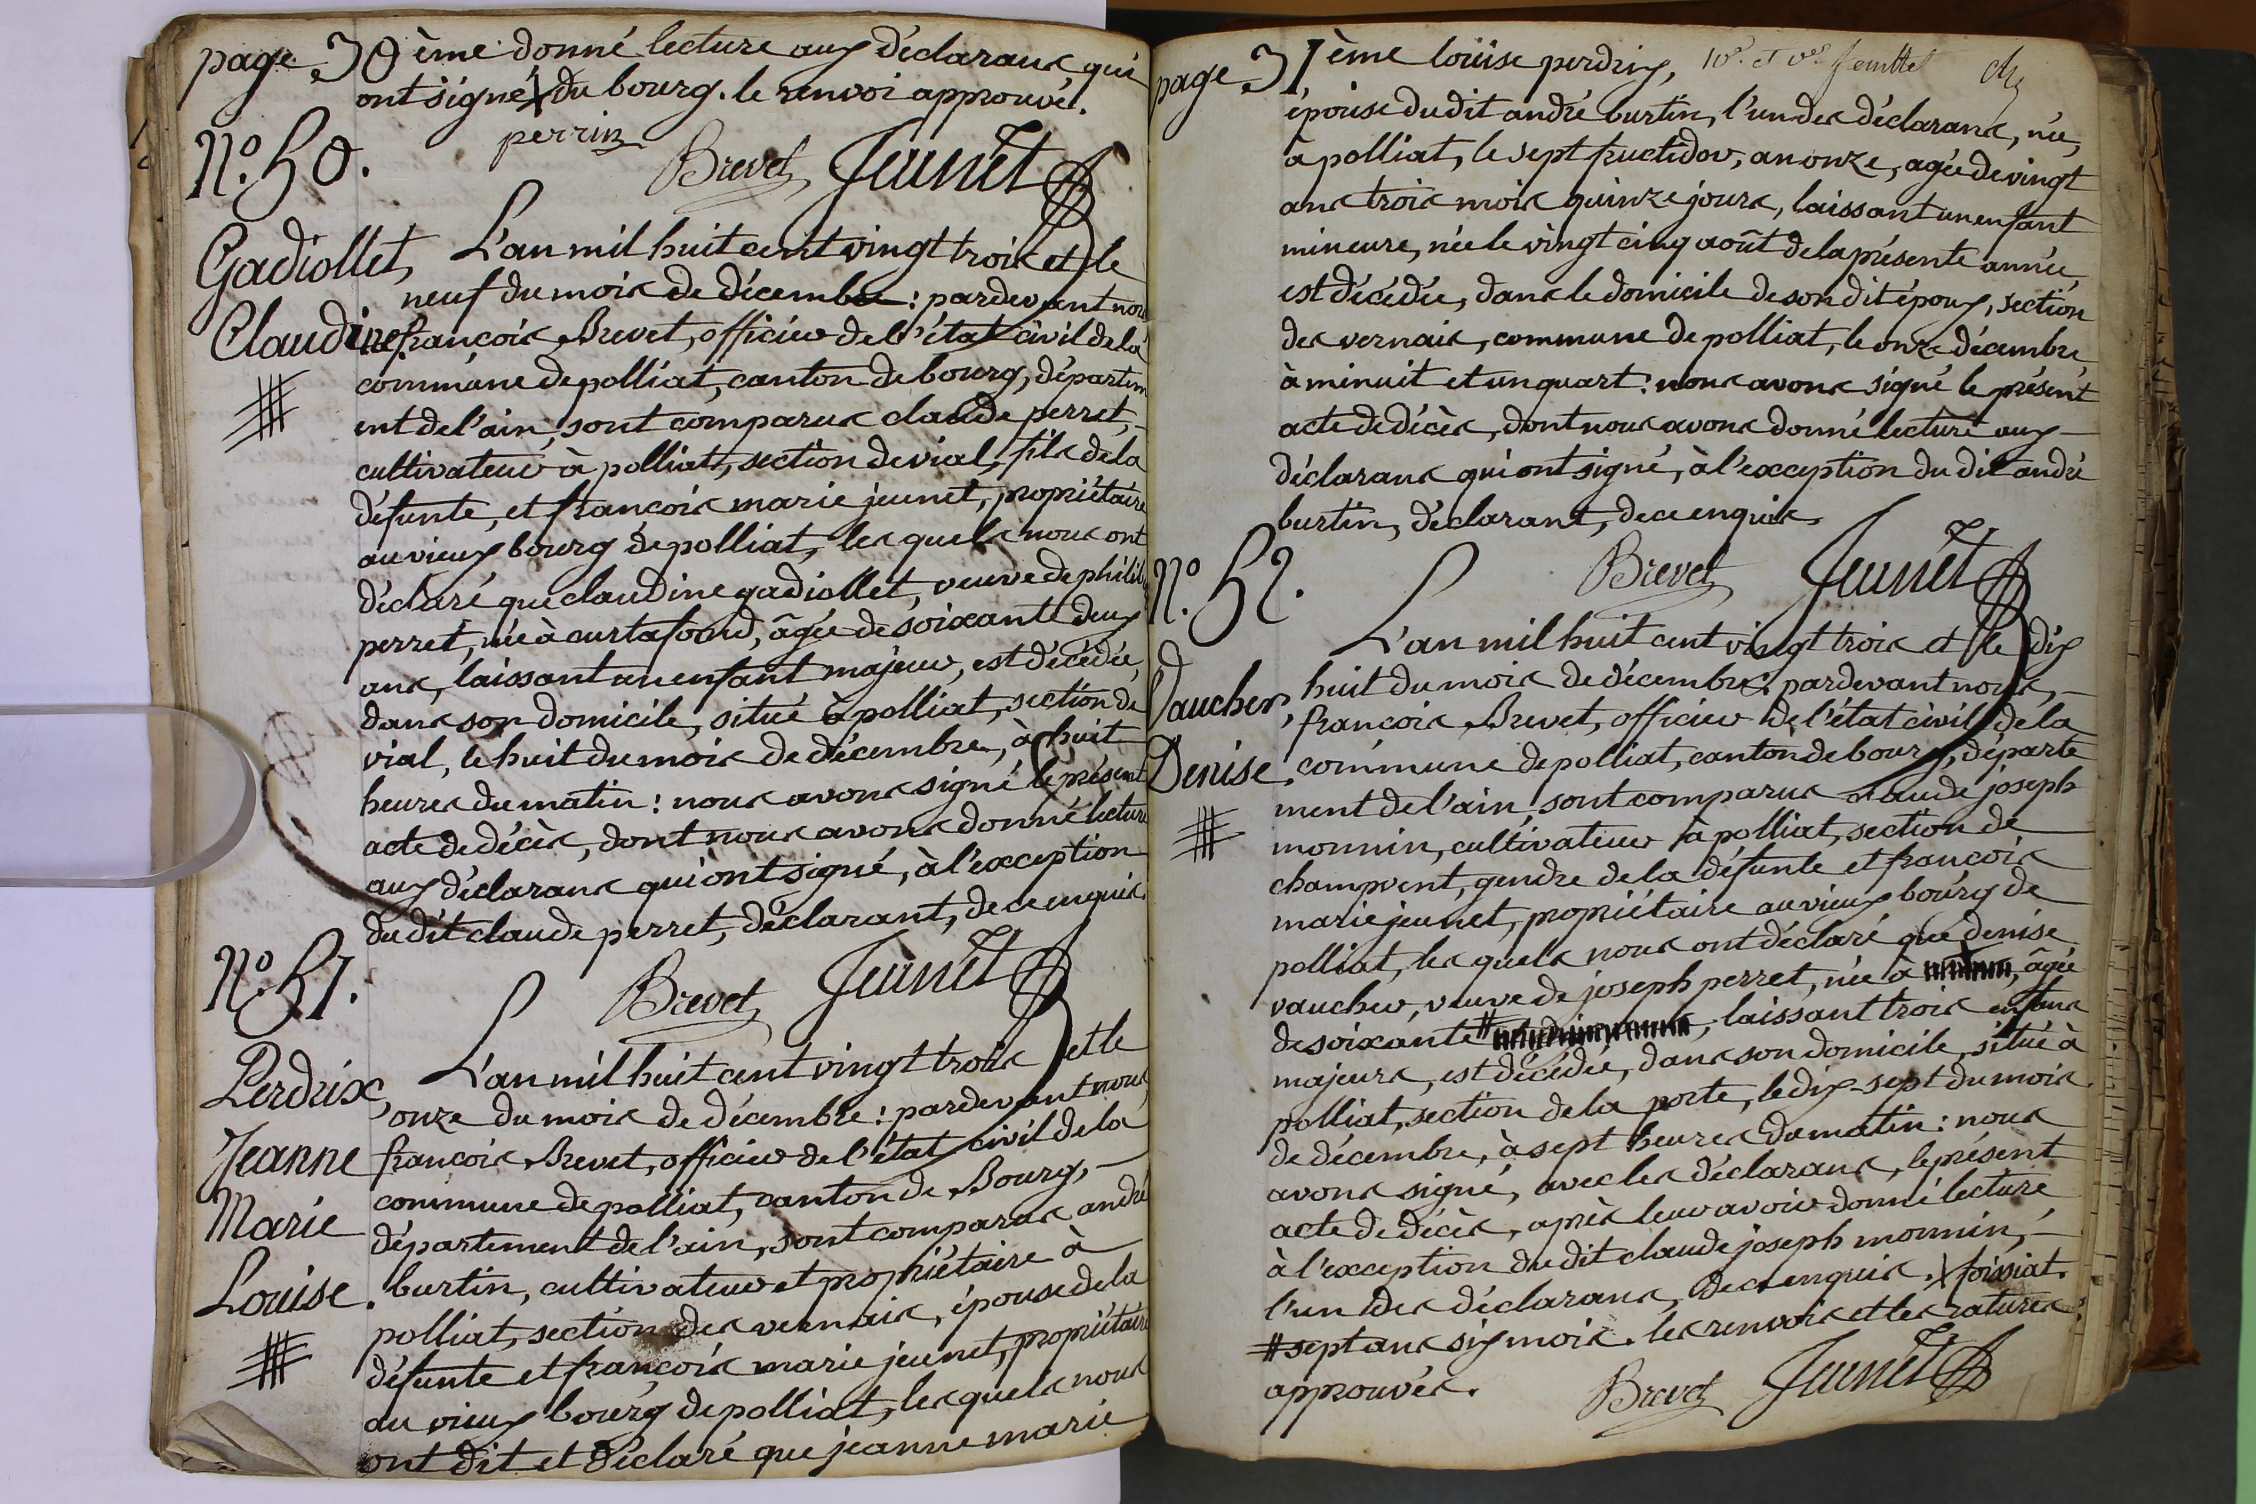 page 30ème donné lecture aux déclarans qui
ont signé X du bourg. le renvoi approuvé.
perrin
Brevet Jeunet
N.º 50.
Gadiollet,
Claudine.
L'an mil huit cent vingt trois et le
neuf du mois de décembre : pardevant nous
françois Brevet, officier de l'état civil de la
commune de polliat, canton de bourg, départem
ent de l'ain, sont comparus claude perret,
cultivateur à polliat, section de vial, fils de la
défunte, et françois marie jeunet, propriétaire
au vieux bourg de polliat, les quels nous ont
déclaré que claudine gadiollet, veuve de philib
perret, née à curtafond, âgée de soixante deux
ans, laissant un enfant majeur, est décédée,
dans son domicile, situé à polliat, section de
vial, le huit du mois de décembre, à huit
heures du matin : nous avons signé le présent
acte de décès, dont nous avons donné lecture
aux déclarans qui ont signé, à l'exception
du dit claude perret, déclarant, de ce enquis.
Brevet Jeunet
N.º 51.
Perdrix,
Jeanne
Marie
Louise.
L'an mil huit cent vingt trois et le
onze du mois de décembre : pardevant nous
françois Brevet, officier de l'état civil de la
commune de polliat, canton de Bourg,
département de l'ain, sont comparus andré
burtin, cultivateur et propriétaire à
polliat, section des vernais, épouse de la
défunte et françois marie jeunet, propriétaire
au vieux bourg de polliat, les quels nous
ont dit et déclaré que jeanne marie
page 31ème loüise perdrix,
épouse du dit andré burtin, l'un des déclarans, née,
à polliat, le sept fructidor, an onze, agée de vingt
ans trois mois quinze jours, laissant un enfant
mineure, née le vingt cinq août de la présente année
est décédée, dans le domicile de son dit époux, section
des vernais, commune de polliat, le onze décembre
à minuit et un quart : nous avons signé le présent
acte de décès, dont nous avons donné lecture aux
déclarans qui ont signé, à l'exception du dit andré
burtin, déclarant, de ce enquis.
Brevet Jeunet
N.º 52.
Vaucher,
Denise.
L'an mil huit cent vingt trois et le dix
huit du mois de décembre pardevant nous,
françois Brevet, officier de l'état civil de la
commune de polliat, canton de bourg, départe
ment de l'ain, sont comparus claude joseph
monnin, cultivateur à polliat, section de
champvent, gendre de la défunte et françois
marie jeunet, propriétaire au vieux bourg de
polliat, les quels nous ont déclaré que denise
vaucher, veuve de joseph perret, née à X, âgée
de soixante #, laissant trois enfans
majeurs, est décédée, dans son domicile, situé à
polliat, section de la porte, le dix-sept du mois
de décembre, à sept heures du matin : nous
avons signé, avec les déclarans, le présent
acte de décès, après leur avoir donné lecture
à l'exception du dit claude joseph monnin,
l'un des déclarans, de ce enquis. X foissiat.
# sept ans six mois. les renvois et les ratures
approuvés.
Brevet Jeunet